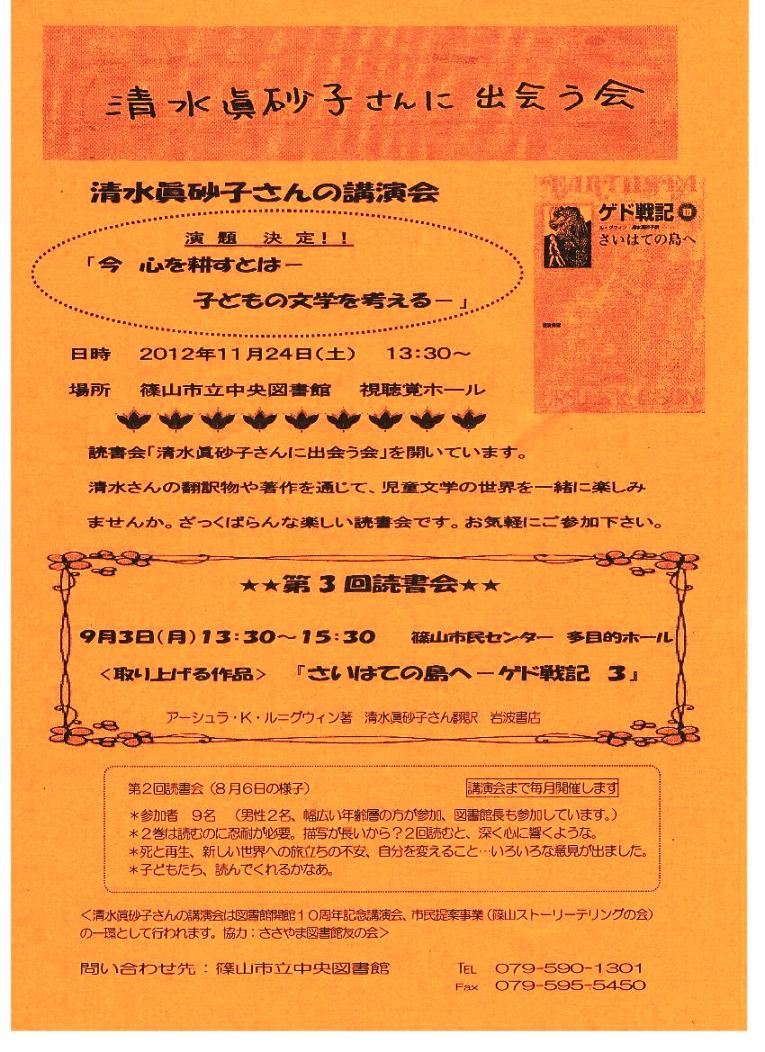 清水眞砂子さんに出会う会
清水眞砂子さんの講演会
演題 決定!!
「今 心を耕すとは－
子どもの文学を考える－」
EARTHSEA
ゲド戦記 III
ル・グウィン 清水真砂子訳
さいはての島へ
岩波書店
URSULA K. LE GUIN
日時 2012年11月24日(土) 13:30～
場所 篠山市立中央図書館 視聴覚ホール
読書会「清水眞砂子さんに出会う会」を開いています。
清水さんの翻訳物や著作を通じて、児童文学の世界を一緒に楽しみ
ませんか。ざっくばらんな楽しい読書会です。お気軽にご参加下さい。
★★第3回読書会★★
9月3日(月)13:30～15:30 篠山市民センター 多目的ホール
＜取り上げる作品＞ 『さいはての島へ－ゲド戦記 3』
アーシュラ・K・ル＝グウィン著 清水眞砂子さん翻訳 岩波書店
第2回読書会（8月6日の様子）
講演会まで毎月開催します
＊参加者 9名 （男性2名、幅広い年齢層の方が参加、図書館長も参加しています。）
＊2巻は読むのに忍耐が必要。描写が長いから？2回読むと、深く心に響くような。
＊死と再生、新しい世界への旅立ちの不安、自分を変えること…いろいろな意見が出ました。
＊子どもたち、読んでくれるかなあ。
＜清水眞砂子さんの講演会は図書館開館１０周年記念講演会、市民提案事業（篠山ストーリーテリングの会）
の一環として行われます。協力：ささやま図書館友の会＞
問い合わせ先：篠山市立中央図書館
TEL 079-590-1301
Fax 079-595-5450